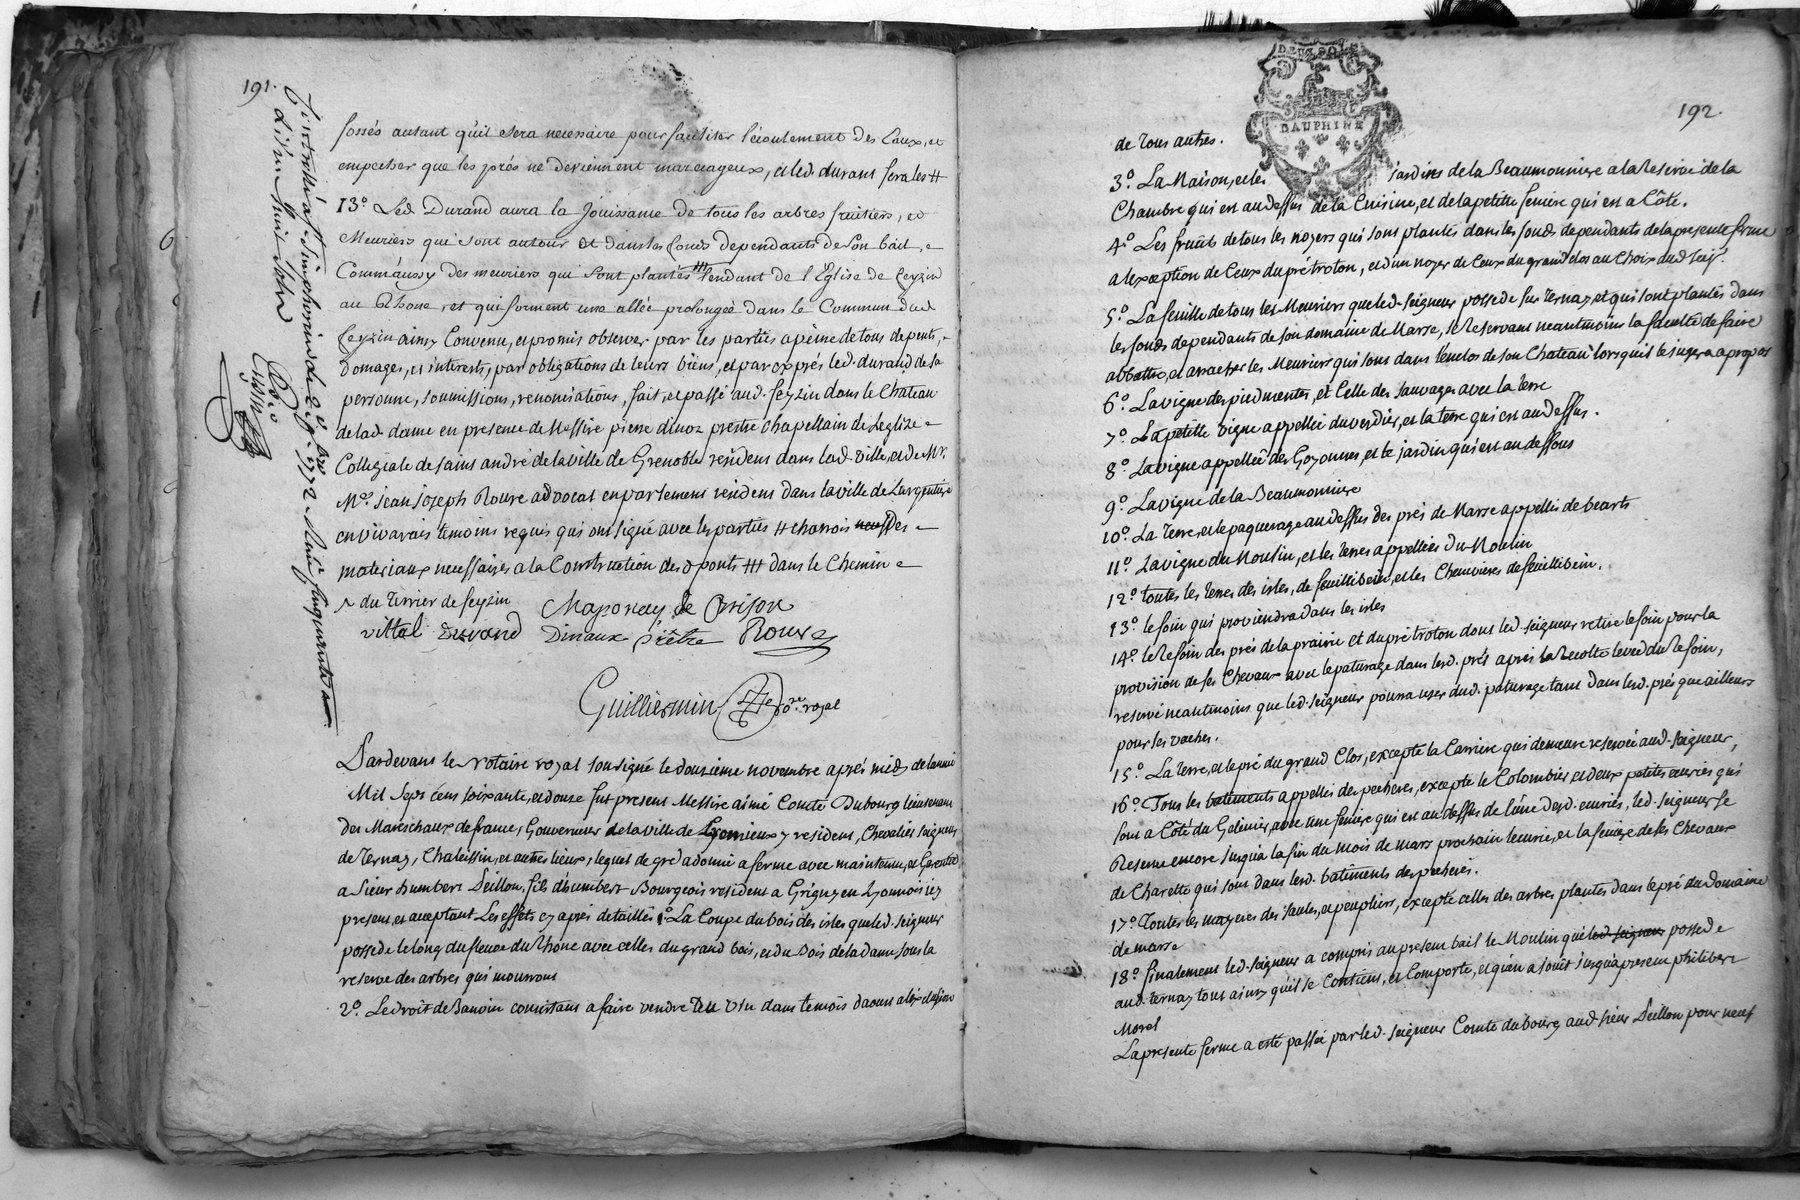 191.
fossés autant qu'il sera necessaire pour faciliter l'écoulement des Eaux, et
empecher que les prés ne deviennent marecageux, et led. durand fera les #
13.º Led Durand aura la Jouissance de tous les arbres fruitiers, et
Meuriers qui sont autour et dans les fonds dependants de son bail,
Comm'aussy des meuriers qui sont plantés ### tendant de l'Eglise de feyzin
au Rhone, et qui forment une allée prolongée dans le Commun dud
feyzin ainsy Convenu, et promis observer par les parties a peine de tous depents,
domages, et interests, par obligations de leurs biens, et par exprés led. durand de sa
personne, soumissions, renonciations, fait, et passé aud. feyzin dans le Chateau
de lad. dame en presence de Messire pierre dinoz prestre Chapellain de L'eglize
Collegiale de saint andré de la ville de Grenoble resident dans lad. ville, et de Mr.
Me. jean joseph Roure advocat en parlement resident dans la ville de Largentiere
en vivarais temoins requis qui ont signé avec les parties # charrois des
materiaux necessaires a la Construction des ponts ### dans le Chemin
^ du terrier de feyzin
vittal Durand
Rour
Guilliermin nore. royal
Pardevant le Notaire royal soussigné le douzieme novembre aprés midy de l'année
Mil Sept cent soixante, et douze fut present Messire aimé Comte Dubourg lieutenant
des Mareschaux de france, Gouverneur de la ville de y resident, Chevalier seigneur
de Ternay, Chaleissin, et autres lieux, lequel de gré a donné a ferme avec maintenue, et Garentie
a Sieur humbert Seillon, fils d'humbert Bourgeois resident a Grigny en Lyonnois icy
present, et acceptant Les effets cy aprés detaillés 1.º La Coupe du bois des isles que led. seigneur
possede le long du fleuve du Rhône avec celles du grand bois, et du bois de la dame sous la
reserve des arbres qui mourront
2.º Le droit de Banvin consistant a faire vendre du vin dans le mois d'aoust a l'exclusion
192.
DEUX SOLS
DAUPHINÉ
de tous autres.
3.º La Maison, et les jardins de la Beaumonniere a la Reserve de la
Chambre qui est au dessus de la Cuisine, et de la petite feniere qui est a Côté.
4.º Les fruits de tous les noyers qui sont plantés dans les fonds dependants de la presente ferme
a lexception de Ceux du pré troton, et d'un noyer de Ceux du grand clos au Choix dud. seigr.
5.º La feuille de tous les Meuriers que led. seigneur possede sur Ternay, et qui sont plantés dans
les fonds dependants de son domaine de Marse, se Reservant neantmoins la faculté de faire
abbattre, et arracher les Meuriers qui sont dans l'enclos de son Chateau lorsqu'il le jugera a propos
6.º La vigne des piedmentes, et Celle des sauvages avec la terre
7.º La petite vigne appellée du verdier, et la terre qui est au dessus.
8.º La vigne appellée des Goyonnes, et le jardin qui est au dessous
9.º La vigne de la Beaumonniere
10.º La Terre, et le paquerage au dessus des prés de Marse appellés de bearts
11.º La vigne du Moulin, et les terres appellées du Moulin
12.º toutes les terres des isles, de feuillibein, et les Chenevieres de feuillibein.
13.º le foin qui proviendra dans les isles
14.º le Refoin des prés de la prairie et du pré troton dont led. seigneur retire le foin pour la
provision de ses Chevaux avec le paturage dans lesd. prés aprés la Recolte levée du Refoin,
reservé neantmoins que led. seigneur pourra user dud. paturage tant dans lesd. prés que ailleurs
pour ses vaches.
15.º La Terre, et le pré du grand Clos, excepté la Carriere qui demeure reservée aud. seigneur,
16.º Tous les batements appellés des pecheres, excepté le Colombier, et deux petites ecuries qui
sont a Côté du Grenier, avec une feniere qui est au dessus de l'une desd. ecuries, led. seigneur se
Reserve encore jusqu'a la fin du mois de mars prochain lecurie, et la feniere de ses Chevaux
de Charette qui sont dans lesd. batiments des pecheres.
17.º Toutes les des saules, et peupliers, excepté celles des arbres plantés dans le pré du domaine
de marse
18.º finalement led. seigneur a compris au present bail le Moulin qu'il possede
aud. ternay tout ainsy qu'il se Contient, et Comporte, et qu'en a jouït jusqu'a present philibert
Morel
La presente ferme a été passée par led. seigneur Comte dubourg aud. sieur Seillon pour neuf